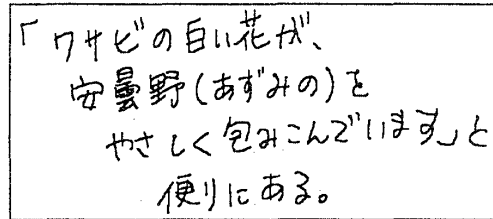 「ワサビの白い花が、
安曇野(あずみの)を
やさしく包みこんでいます」と
便りにある。